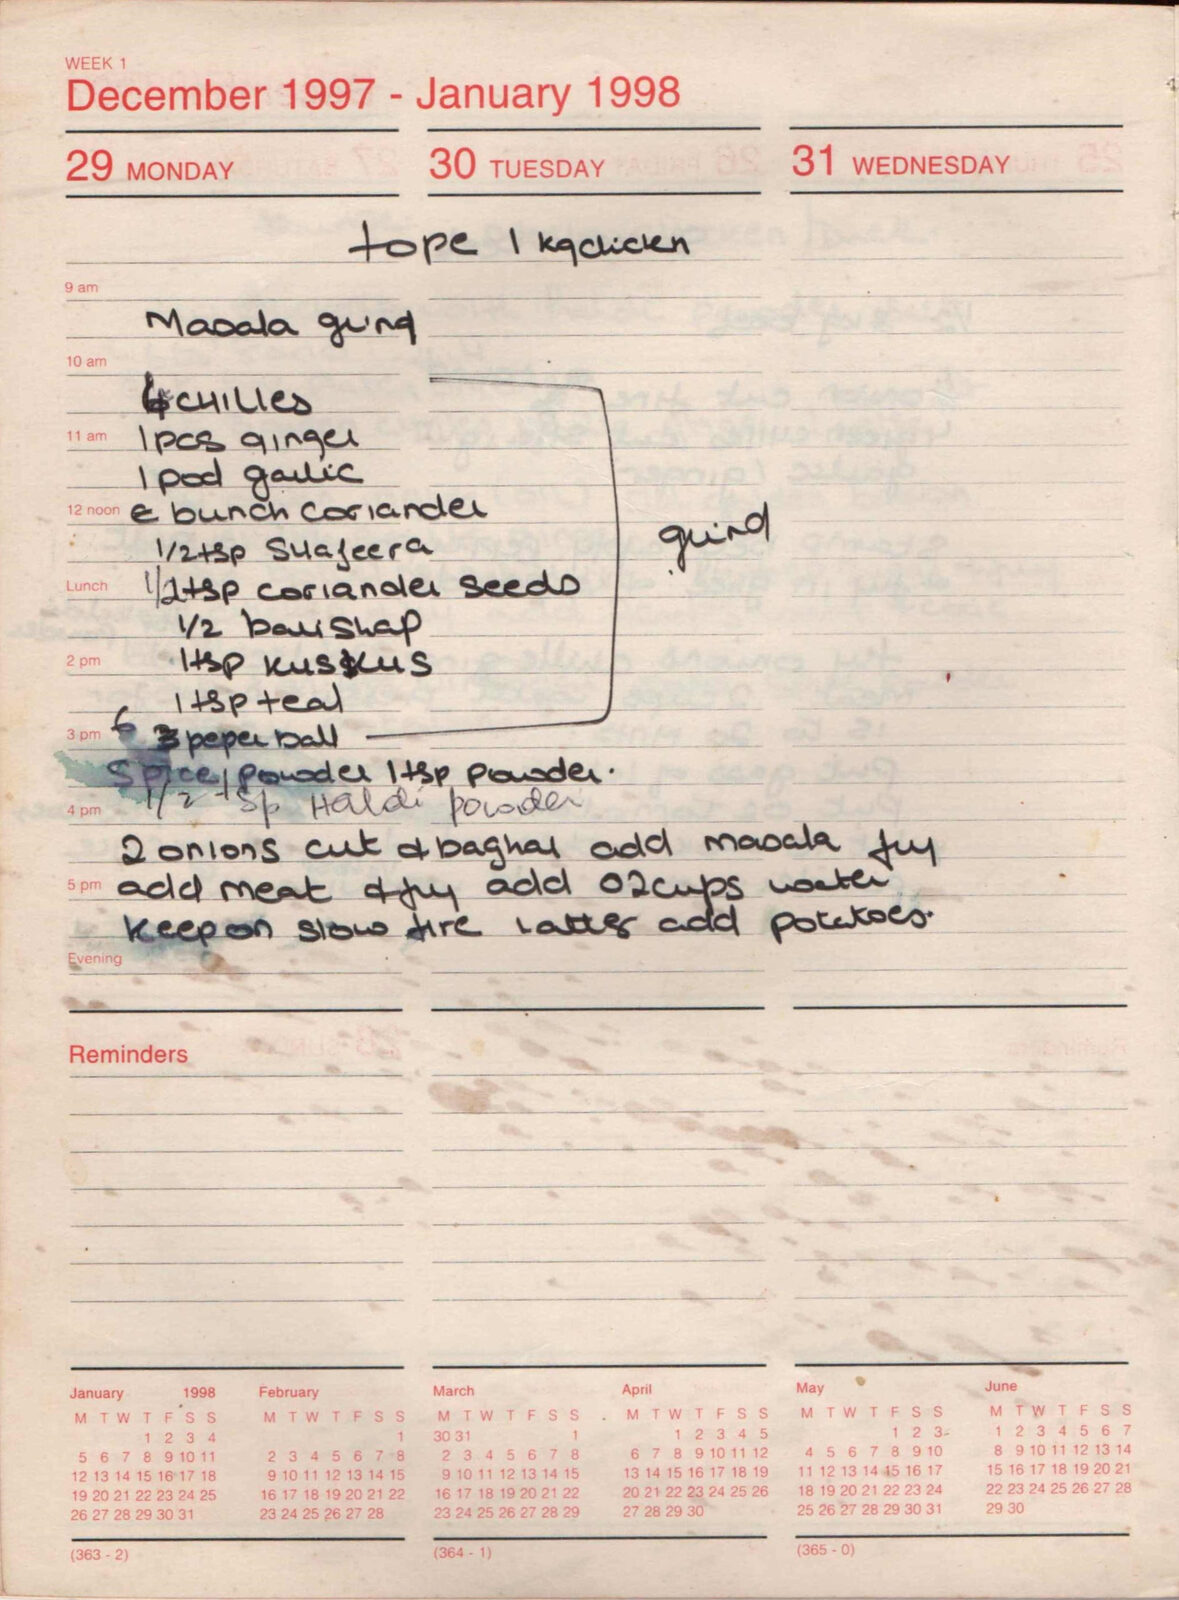 WEEK 1
December 1997 - January 1998
29 MONDAY
30 TUESDAY
31 WEDNESDAY
tope 1 kg chicken
9 am
Masala grind
10 am
6 CHILLES
11 am 1 pcs ginger
1 pod garlic
12 noon bunch coriander
1/2 tsp Shajeera
Lunch 1/2 tsp coriander seeds
grind
1/2 barishap
2 pm 1 tsp kuskus
1 tsp teal
3 pm 6 peper ball
Spice powder 1 tsp powder.
4 pm 1/2 tsp Haldi powder
2 onions cut & baghar add masala fry
5 pm add meat & fry add 02 cups water
keep on slow fire latter add potatoes.
Evening
Reminders
January 1998
M T W T F S S
1 2 3 4
5 6 7 8 9 10 11
12 13 14 15 16 17 18
19 20 21 22 23 24 25
26 27 28 29 30 31
February
M T W T F S S
1
2 3 4 5 6 7 8
9 10 11 12 13 14 15
16 17 18 19 20 21 22
23 24 25 26 27 28
March
M T W T F S S
30 31 1
2 3 4 5 6 7 8
9 10 11 12 13 14 15
16 17 18 19 20 21 22
23 24 25 26 27 28 29
April
M T W T F S S
1 2 3 4 5
6 7 8 9 10 11 12
13 14 15 16 17 18 19
20 21 22 23 24 25 26
27 28 29 30
May
M T W T F S S
1 2 3
4 5 6 7 8 9 10
11 12 13 14 15 16 17
18 19 20 21 22 23 24
25 26 27 28 29 30 31
June
M T W T F S S
1 2 3 4 5 6 7
8 9 10 11 12 13 14
15 16 17 18 19 20 21
22 23 24 25 26 27 28
29 30
(363 - 2)
(364 - 1)
(365 - 0)